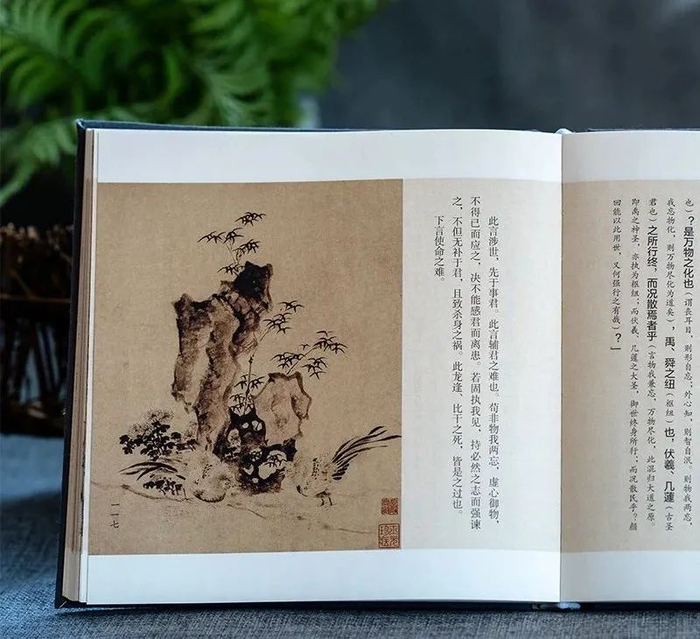 也）？是万物之化也（谓丧耳目，则形自忘，外心知，则智自泯，则物我两忘
我忘物化，则万物尽化为道矣），禹、舜之纽（枢纽）也，伏羲、几蘧（古圣
君也）之所行终，而况散焉者乎（言物我兼忘，万物尽化，此混归大道之原。
即禹之神圣，亦执为枢纽；而伏羲、几蘧之大圣，御世终身所行；而况散民乎？颜
回能以此用世，又何强行之有哉）？」
此言涉世，先于事君。此言辅君之难也。苟非物我两忘，虚心御物，
不得已而应之，决不能感君而离患。若固执我见，持必然之志而强谏
之，不但无补于君，且致杀身之祸。此龙逢、比干之死，皆是之过也。
下言使命之难。
一一七